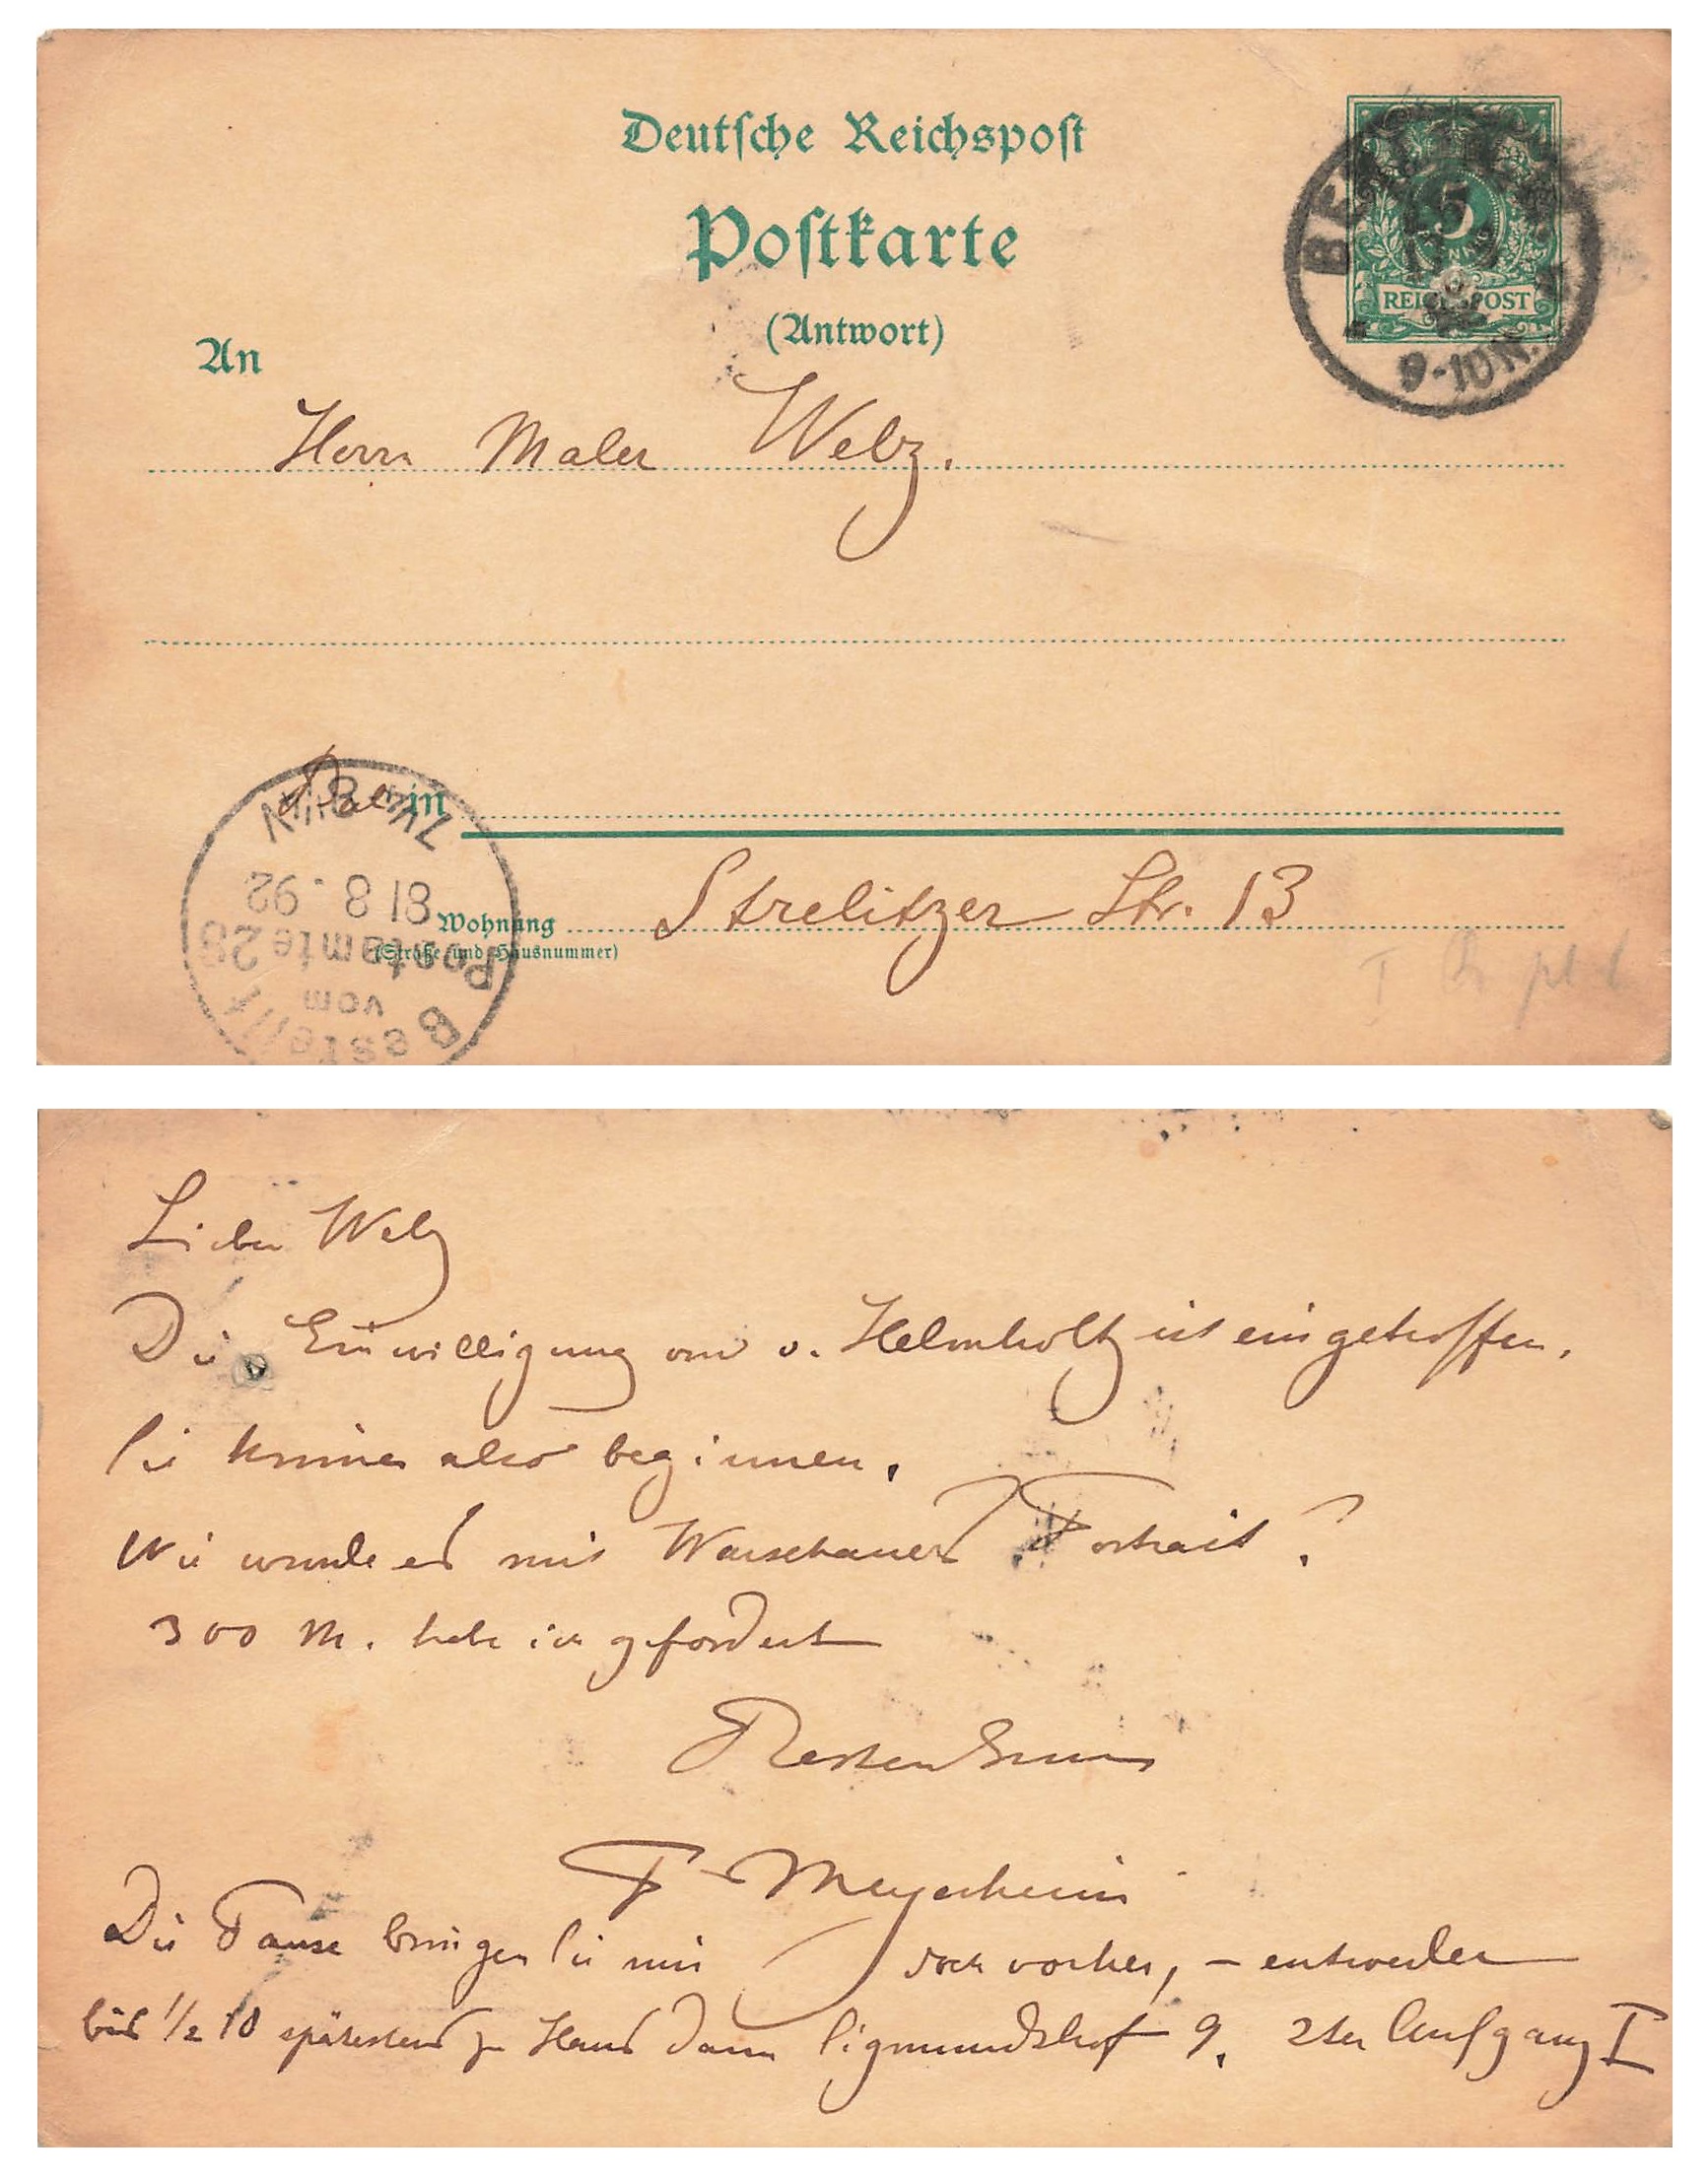 Deutsche Reichspost
Postkarte
(Antwort)
An
REICHSPOST
5
9-10N.
Herrn Maler Welz.
in
Wohnung
(Straße und Hausnummer)
Strelitzer Str. 13
Bestellt
vom
Postamte 28
8 8. 92
Lieber Welz
Die Einwilligung von v. Helmholtz ist eingetroffen.
Sie können also beginnen.
Wie wurde es mit Warschauers Portrait?
300 M. habe ich gefordert
Besten Gruss
P Meyerheim
Die Pause bringen Sie mir doch vorher, – entweder
bis 1/2 10 spätestens zu Haus dann Sigmundshof 9. 2ter Aufgang I